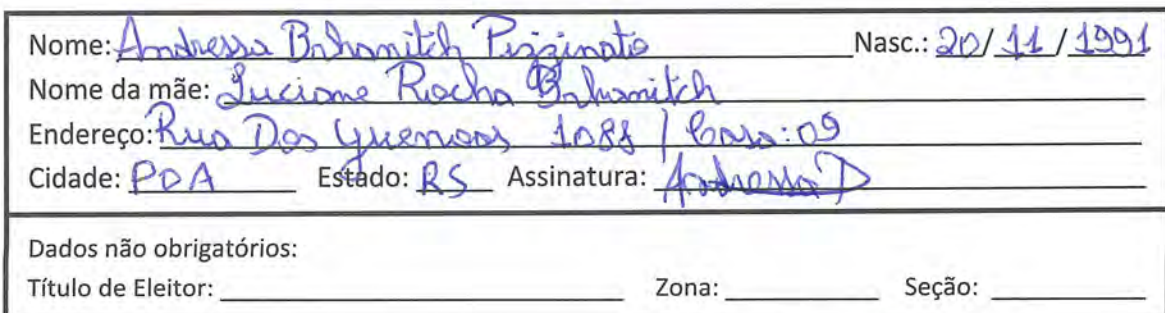 Nome: Andressa Brhanitch Pizzinato Nasc.: 20/11/1991
Nome da mãe: Luciane Rocha Brhanitch
Endereço: Rua Dos Guenoas 1088 / Casa: 09
Cidade: POA Estado: RS Assinatura: Andressa P
Dados não obrigatórios:
Título de Eleitor: Zona: Seção: